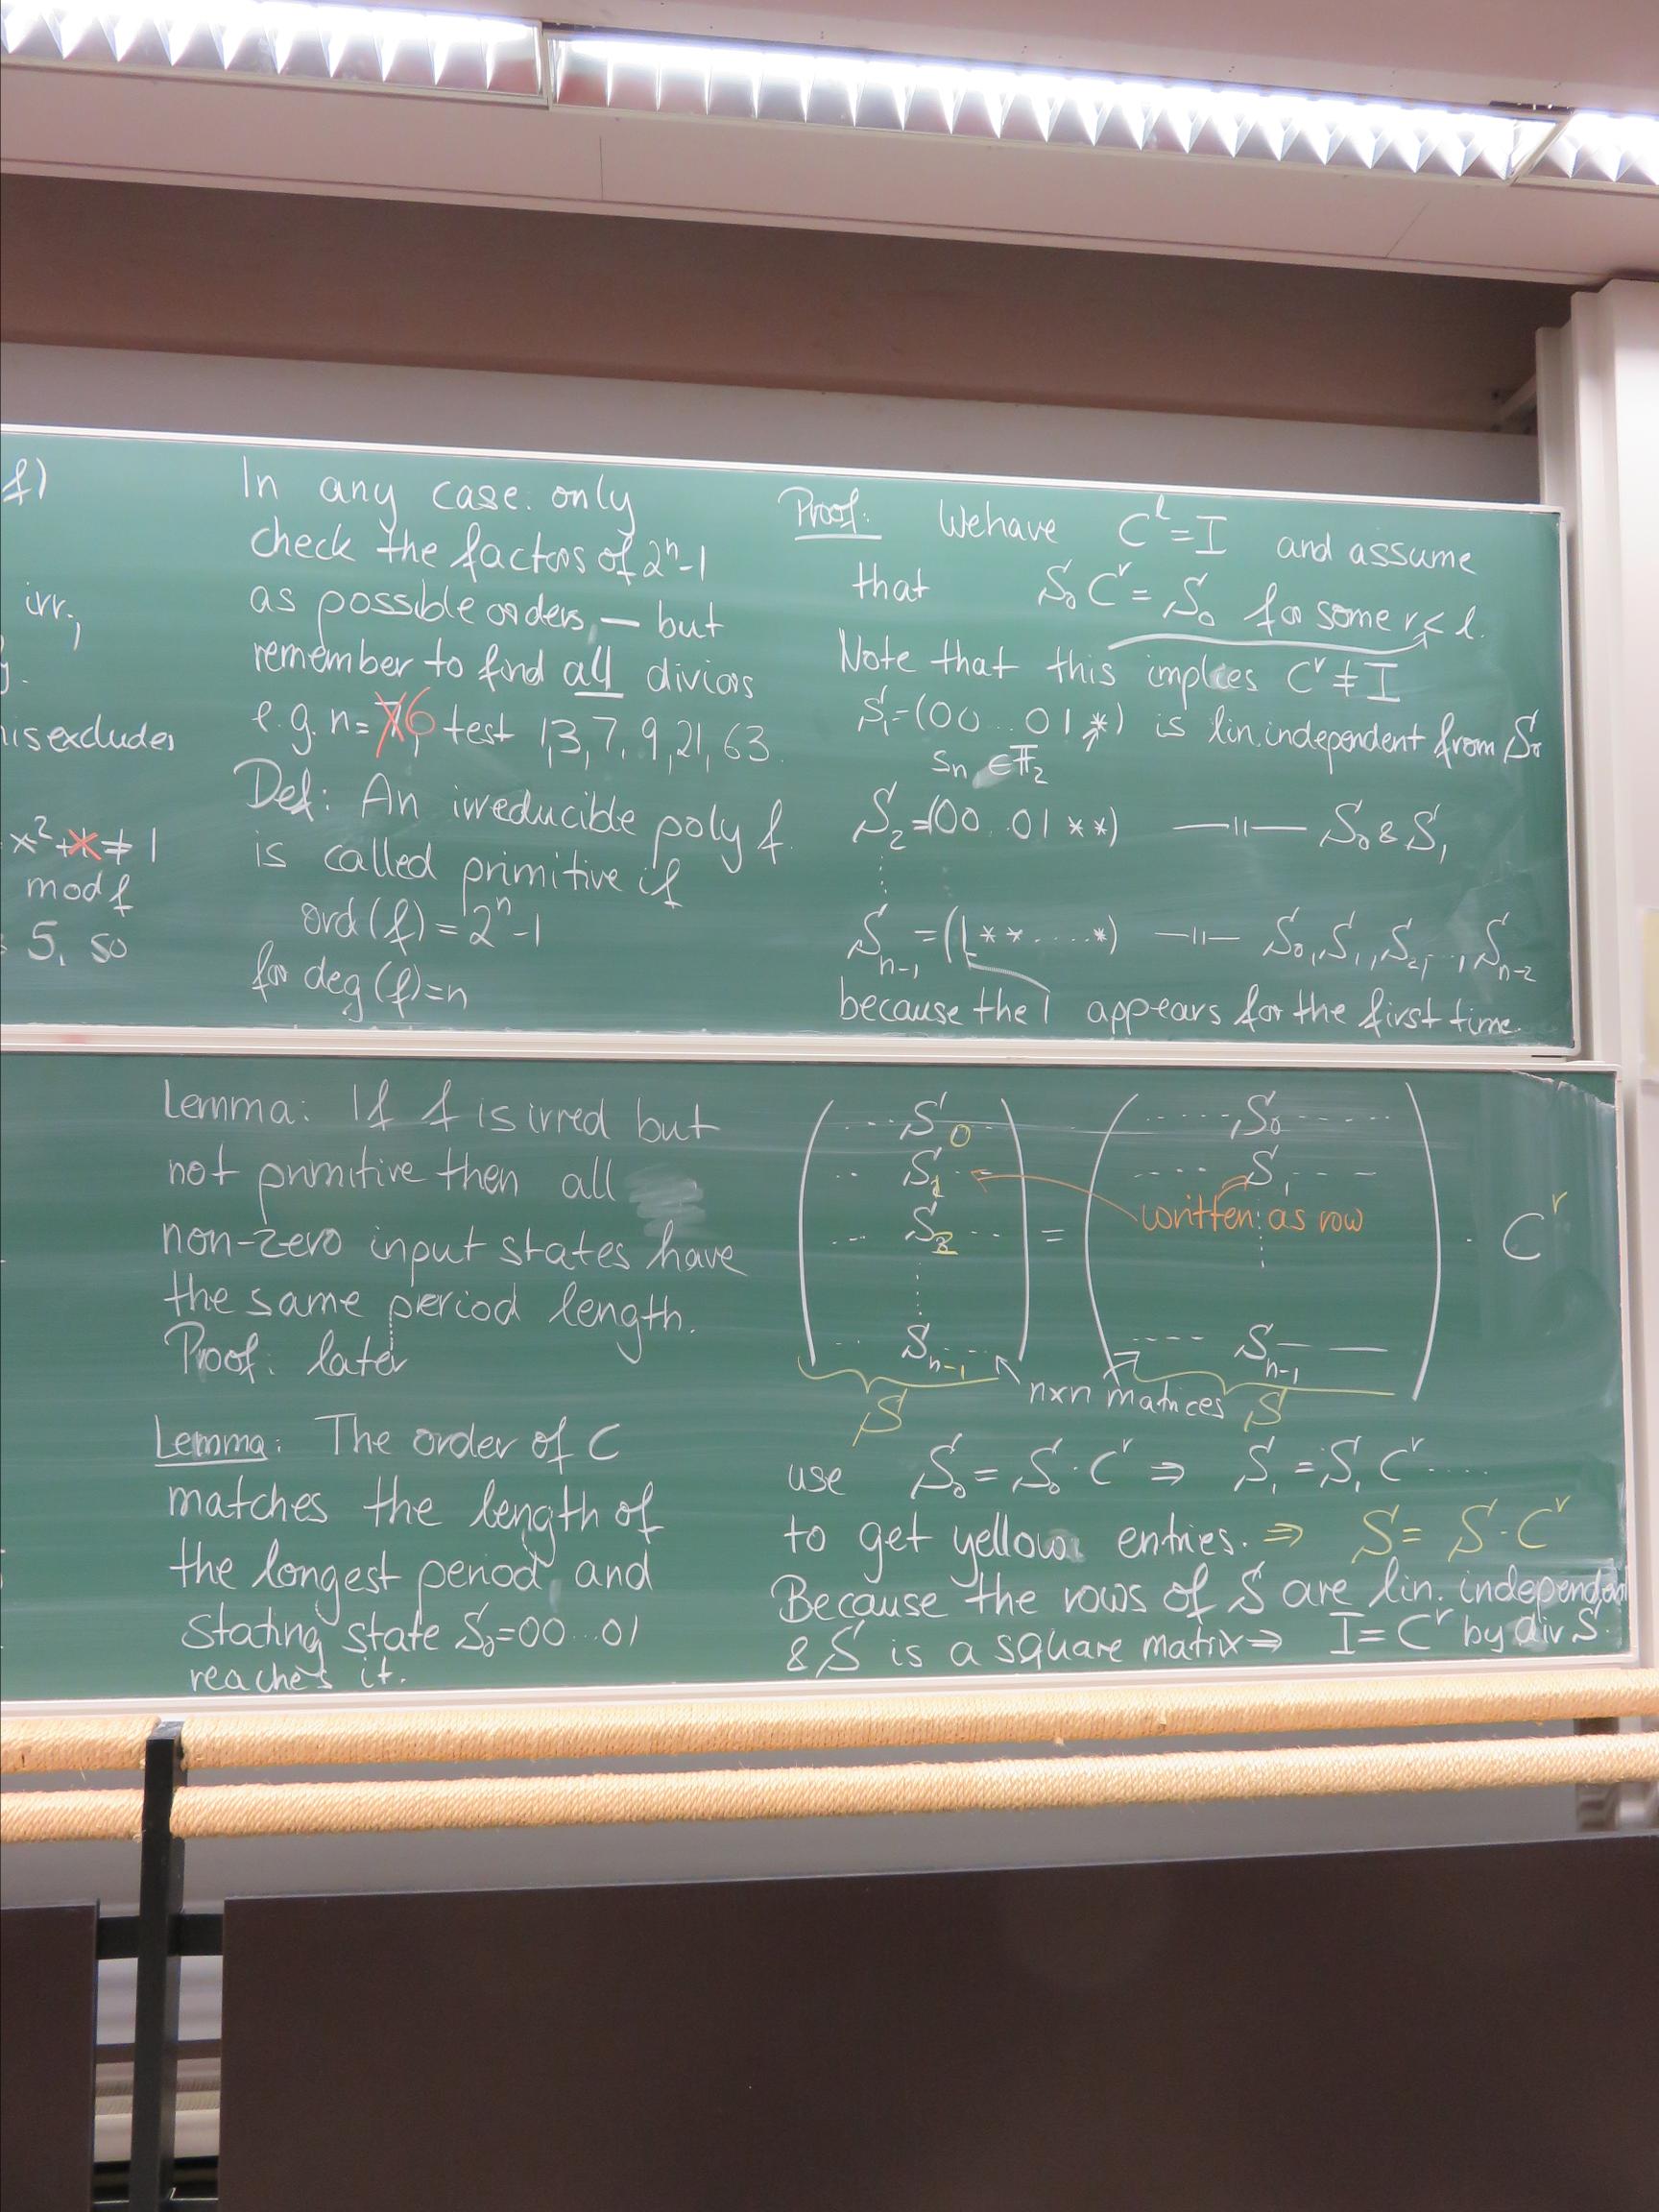 f)
irr.,
y.
his excludes
x²+x ≠ 1
mod f
5, so
In any case: only
check the factors of 2ⁿ-1
as possible orders, — but
remember to find all diviors
e.g. n=6, test 1,3,7,9,21,63.
Def: An irreducible poly f
is called primitive if
ord(f)=2ⁿ-1
for deg(f)=n
Proof: We have Cˡ=I and assume
that S₀Cʳ=S₀ for some r<l.
Note that this implies Cʳ≠I
S₁=(00...01*) is lin. independent from S₀
Sn ∈ F₂
S₂=(00..01**) —"— S₀ & S₁
⋮
Sₙ₋₁=(1**....*) —"— S₀, S₁, S₂, ..., Sₙ₋₂
because the 1 appears for the first time.
Lemma: If f is irred but
not primitive then all
non-zero input states have
the same period length.
Proof: later
Lemma: The order of C
matches the length of
the longest period and
stating state S₀=00...01
reaches it.
(...S₀...) = (.....S₀.....) · Cʳ
..S₁.. ....S₁---
written as row
...S₂...
⋮ ⋮
..Sₙ₋₁.... ----Sₙ₋₁——
S n×n matrices S
use S₀=S₀·Cʳ ⇒ S₁=S₁Cʳ....
to get yellow entries. ⇒ S=S·Cʳ
Because the rows of S are lin. independent
& S is a square matrix ⇒ I=Cʳ by div S.